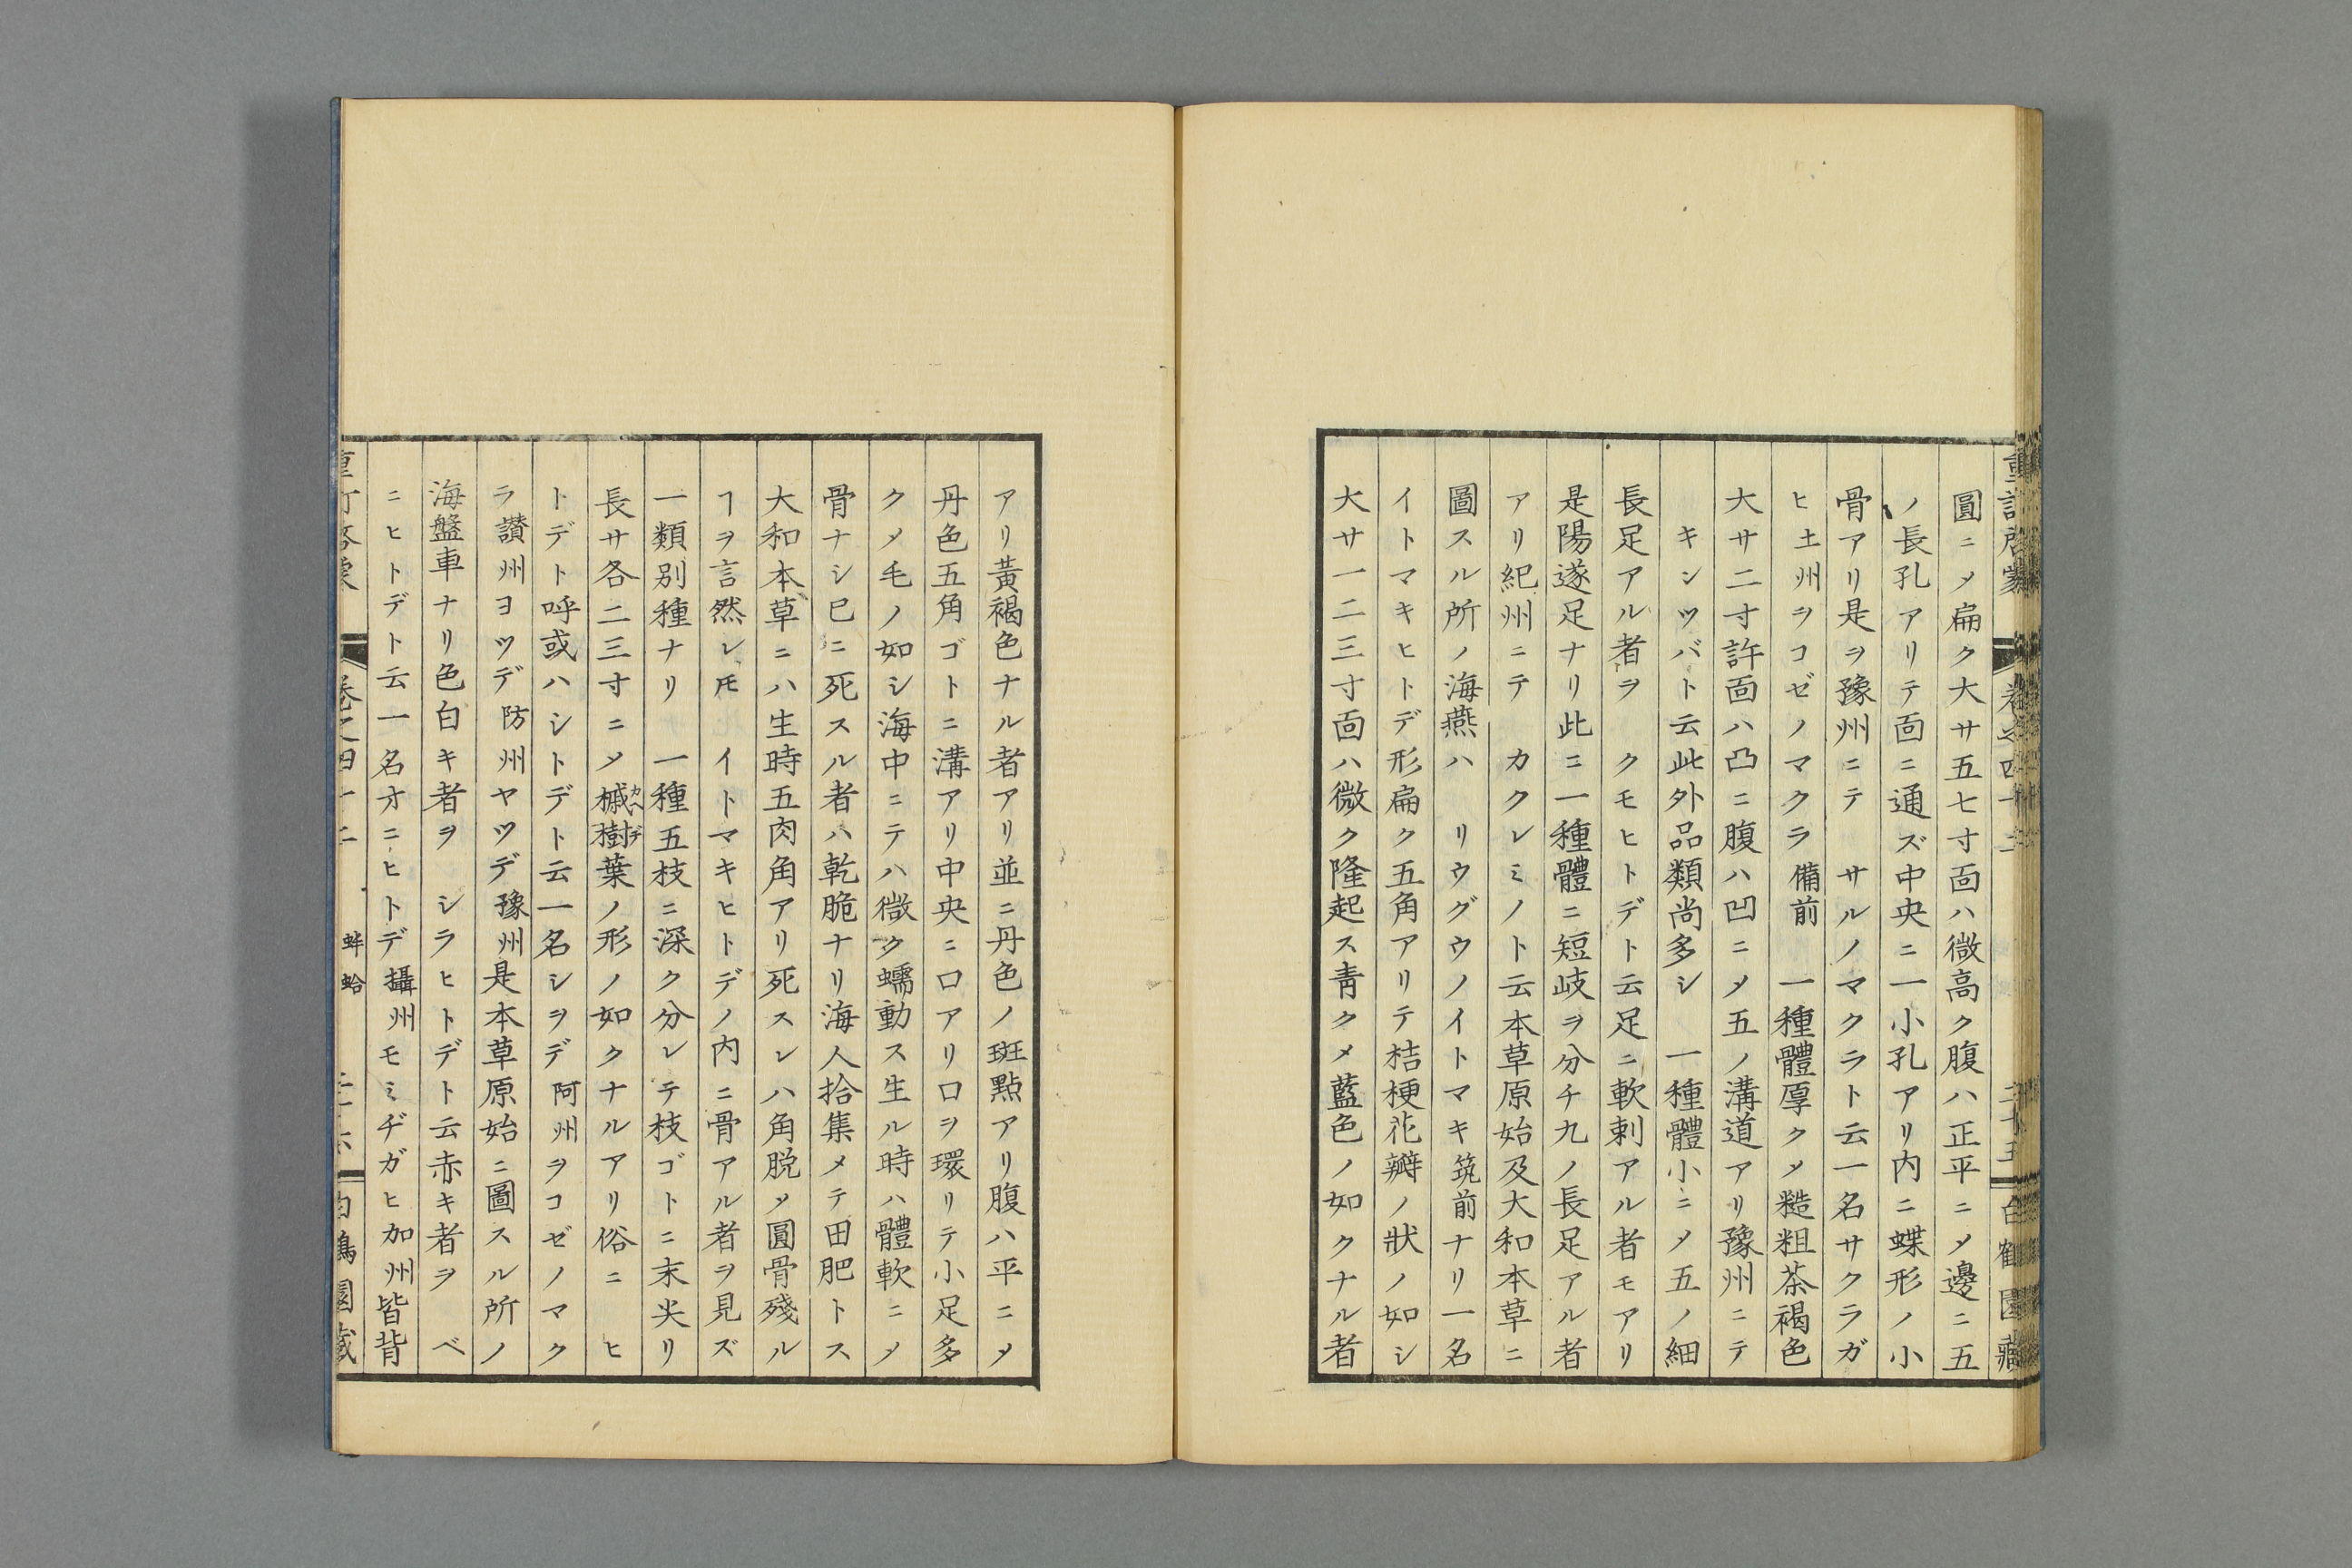 圓ニメ扁ク大サ五七寸面ハ微高ク腹ハ正平ニメ邊ニ五
ノ長孔アリテ面ニ通ズ中央ニ一小孔アリ内ニ蝶形ノ小
骨アリ是ヲ豫州ニテ サルノマクラト云一名サクラガ
ヒ土州ヲコゼノマクラ備前 一種體厚クメ糙粗茶褐色
大サ二寸許面ハ凸ニ腹ハ凹ニメ五ノ溝道アリ豫州ニテ
キンツバト云此外品類尚多シ 一種體小ニメ五ノ細
長足アル者ヲ クモヒトデト云足ニ軟刺アル者モアリ
是陽遂足ナリ此ニ一種體ニ短岐ヲ分チ九ノ長足アル者
アリ紀州ニテ カクレミノト云本草原始及大和本草ニ
圖スル所ノ海燕ハ リウグウノイトマキ筑前ナリ一名
イトマキヒトデ形扁ク五角アリテ桔梗花瓣ノ狀ノ如シ
大サ一二三寸面ハ微ク隆起ス靑クメ藍色ノ如クナル者
重訂啓蒙 卷之四十二 二十五 白鶴園藏
アリ黃褐色ナル者アリ並ニ丹色ノ斑點アリ腹ハ平ニメ
丹色五角ゴトニ溝アリ中央ニ口アリ口ヲ環リテ小足多
クメ毛ノ如シ海中ニテハ微ク蠕動ス生ル時ハ體軟ニメ
骨ナシ已ニ死スル者ハ乾脆ナリ海人拾集メテ田肥トス
大和本草ニハ生時五肉角アリ死スレハ角脱メ圓骨殘ル
ヿヲ言然レ𪜈 イトマキヒトデノ内ニ骨アル者ヲ見ズ
一類別種ナリ 一種五枝ニ深ク分レテ枝ゴトニ末尖リ
長サ各二三寸ニメ槭樹葉ノ形ノ如クナルアリ俗ニ ヒ
カヘデ
トデト呼或ハシトデト云一名シヲデ阿州ヲコゼノマク
ラ讃州ヨツデ防州ヤツデ豫州是本草原始ニ圖スル所ノ
海盤車ナリ色白キ者ヲ シラヒトデト云赤キ者ヲ ベ
ニヒトデト云一名オニヒトデ攝州モミヂガヒ加州皆背
蚌蛤